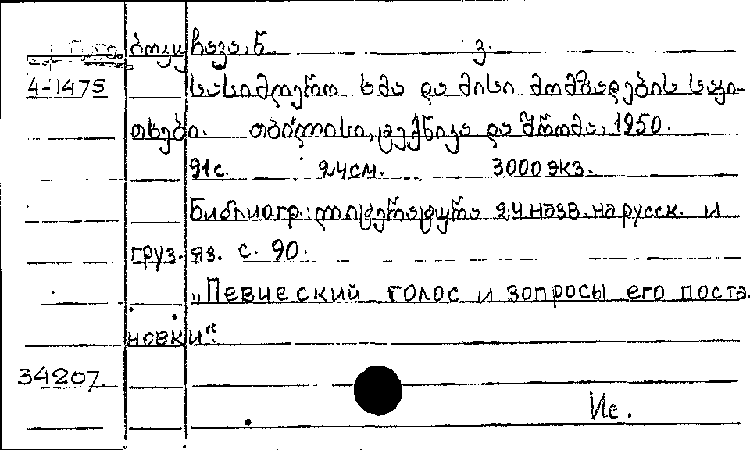 ბოკუჩავა, ნ. ვ.
4-1475
სასიმღერო ხმა და მისი მომზადების საკი-
თხები. თბილისი, ტექნიკა და შრომა, 1950.
91с. 24см. 3000 экз.
Библиогр.: ლიტერატურა 24 назв. на русск. и
груз. яз. с. 90.
"Певческий голос и вопросы его поста
новки".
34207.
Ис.